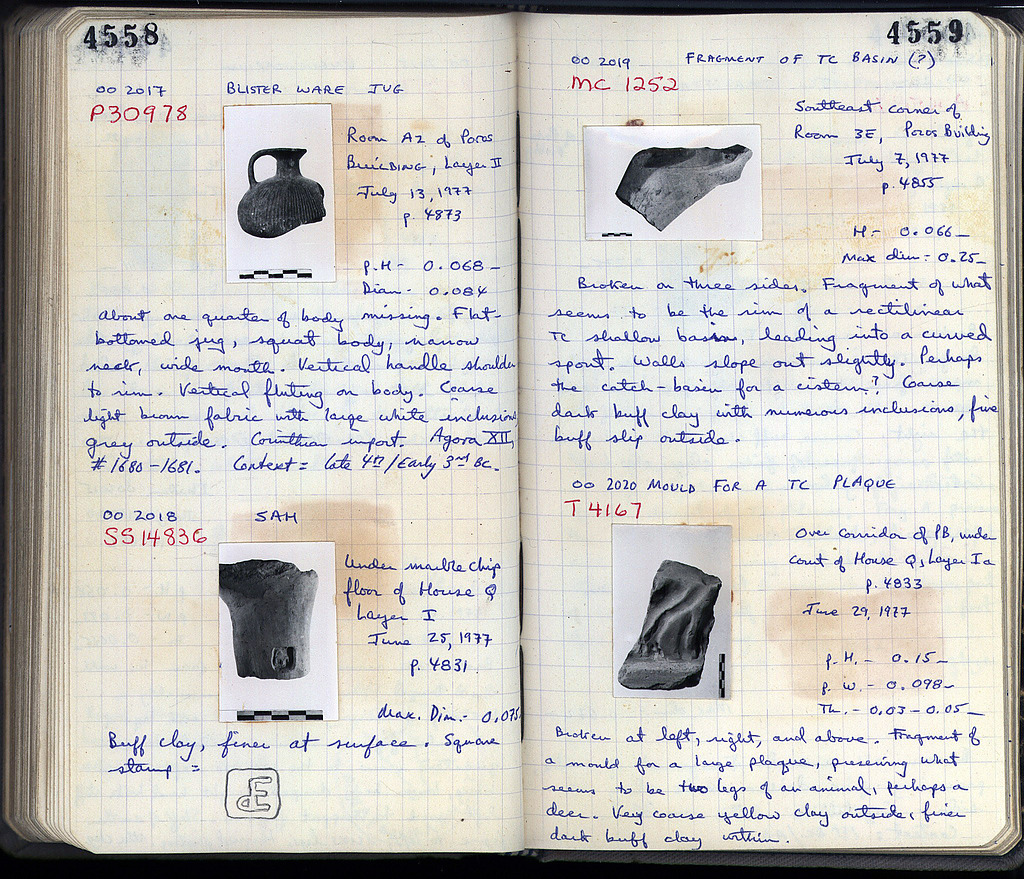 4558
OO 2017 BLISTER WARE JUG
P30978
Room A2 of Poros
Building, Layer II
July 13, 1977
p. 4873
p.H - 0.068 -
Diam - 0.084
About one quarter of body missing. Flat-
bottomed jug, squat body, narrow
neck, wide mouth. Vertical handle shoulder
to rim. Vertical fluting on body. Coarse
light brown fabric with large white inclusions
grey outside. Corinthian import. Agora XII,
# 1680-1681. Context = late 4th/Early 3rd BC.
OO 2018 SAH
SS14836
Under marble chip
floor of House Q
Layer I
June 25, 1977
p. 4831
Max. Dim. - 0.075
Buff clay, finer at surface. Square
stamp =
4559
OO 2019 FRAGMENT OF TC BASIN (?)
MC 1252
Southeast corner of
Room 3E, Poros Building
July 7, 1977
p. 4855
H - 0.066 -
Max dim - 0.25 -
Broken on three sides. Fragment of what
seems to be the rim of a rectilinear
TC shallow basin, leading into a curved
spout. Walls slope out slightly. Perhaps
the catch-basin for a cistern? Coarse
dark buff clay with numerous inclusions, fine
buff slip outside.
OO 2020 MOULD FOR A TC PLAQUE
T4167
Over corridor of PB, under
court of House Q, Layer Ia
p. 4833
June 29, 1977
p. H. - 0.15 -
p. W. - 0.098 -
Th. - 0.03 - 0.05 -
Broken at left, right, and above. Fragment of
a mould for a large plaque, preserving what
seems to be two legs of an animal, perhaps a
deer. Very coarse yellow clay outside, finer
dark buff clay within.